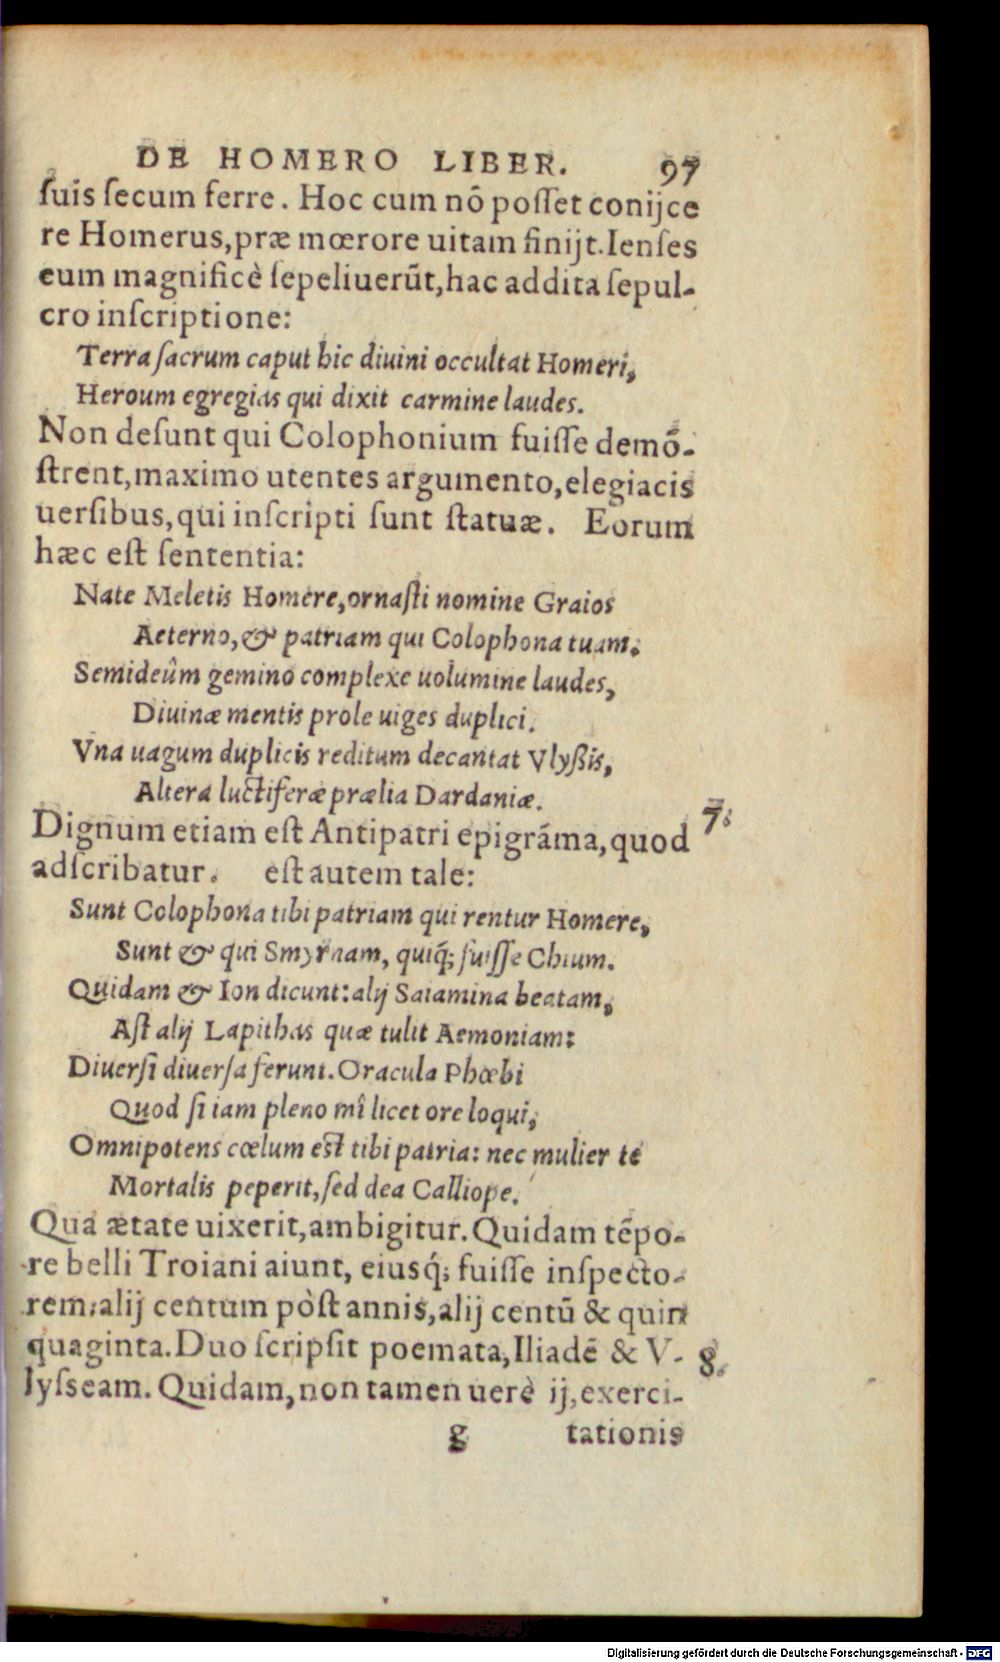 DE HOMERO LIBER. 97
ſuis ſecum ferre. Hoc cum nō poſſet conijce
re Homerus, præ mœrore uitam finijt. Ienſes
eum magnificè ſepeliuerūt, hac addita ſepul-
cro inſcriptione:
Terra ſacrum caput hic diuini occultat Homeri,
Heroum egregias qui dixit carmine laudes.
Non deſunt qui Colophonium fuiſſe demō-
ſtrent, maximo utentes argumento, elegiacis
uerſibus, qui inſcripti ſunt ſtatuæ. Eorum
hæc eſt ſententia:
Nate Meletis Homere, ornaſti nomine Graios
Aeterno, & patriam qui Colophona tuam.
Semideûm gemino complexe uolumine laudes,
Diuinæ mentis prole uiges duplici.
Vna uagum duplicis reditum decantat Vlyßis,
Altera luctiferæ prælia Dardaniæ.
Dignum etiam eſt Antipatri epigrāma, quod 7.
adſcribatur. eſt autem tale:
Sunt Colophona tibi patriam qui rentur Homere,
Sunt & qui Smyrnam, quiq́; fuiſſe Chium.
Quidam & Ion dicunt: alij Saiamina beatam,
Aſt alij Lapithas quæ tulit Aemoniam:
Diuerſi diuerſa ferunt. Oracula Phœbi
Quod ſi iam pleno mî licet ore loqui,
Omnipotens cœlum eſt tibi patria: nec mulier te
Mortalis peperit, ſed dea Calliope.
Qua ætate uixerit, ambigitur. Quidam tēpo-
re belli Troiani aiunt, eiusq́; fuiſſe inſpecto-
rem: alij centum pòſt annis, alij centū & quin
quaginta. Duo ſcripſit poemata, Iliadē & V- 8.
lyſseam. Quidam, non tamen uerè ij, exerci-
g tationis
Digitalisierung gefördert durch die Deutsche Forschungsgemeinschaft - DFG